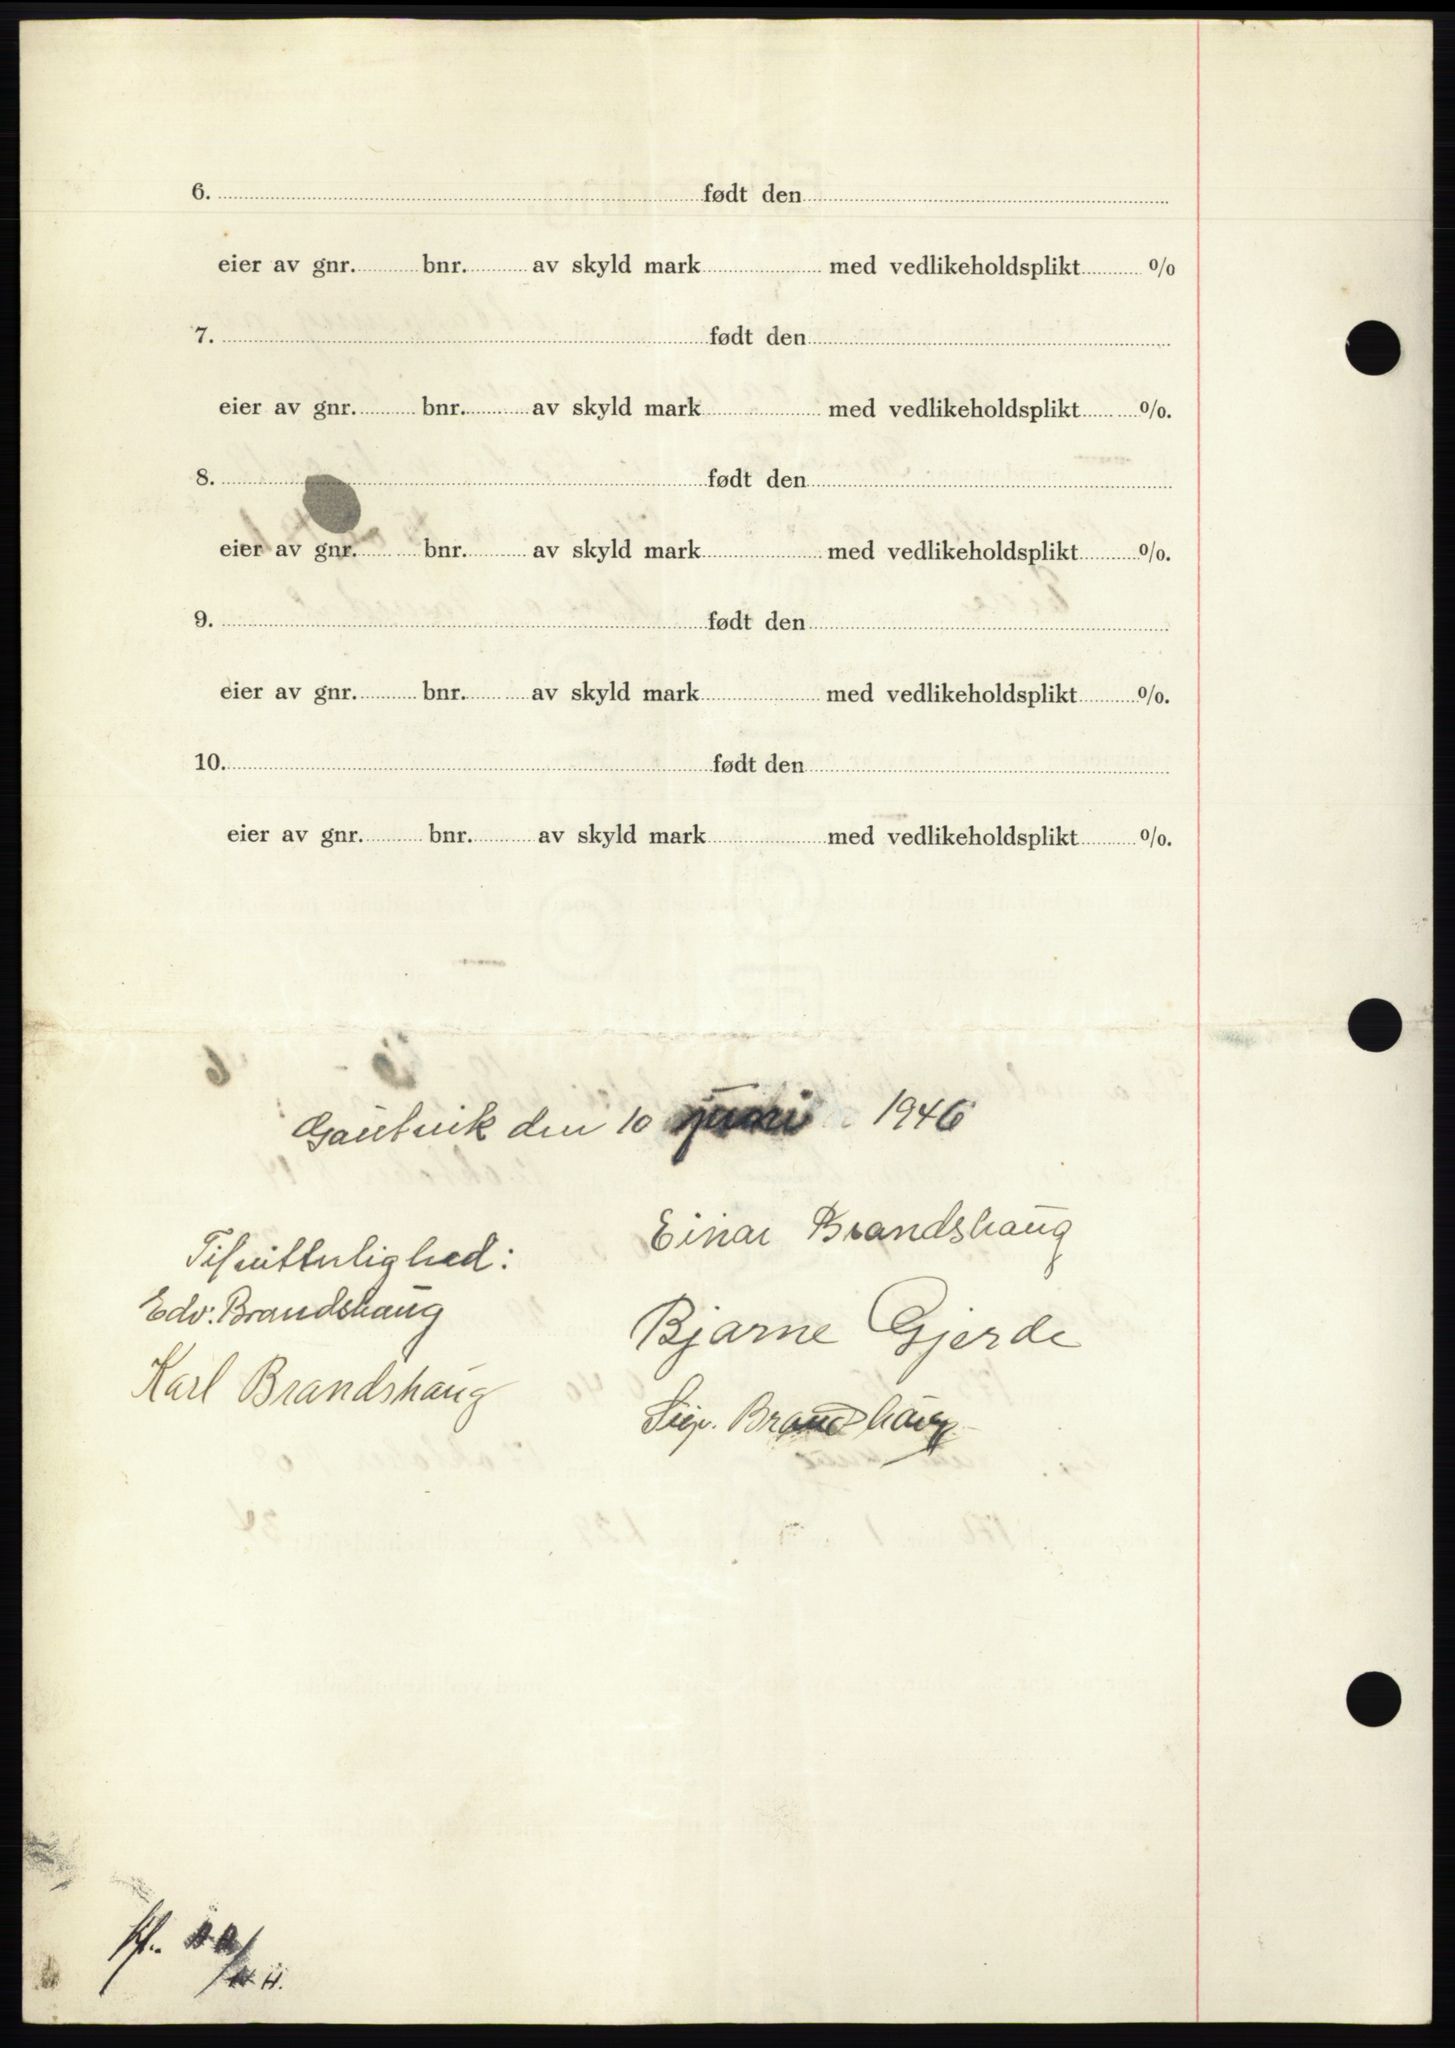 6. født den
eier av gnr. bnr. av skyld mark med vedlikeholdsplikt %
7. født den
eier av gnr. bnr. av skyld mark med vedlikeholdsplikt %.
8. født den
eier av gnr. bnr. av skyld mark med vedlikeholdsplikt %.
9. født den
eier av gnr. bnr. av skyld mark med vedlikeholdsplikt %.
10. født den
eier av gnr. bnr. av skyld mark med vedlikeholdsplikt %.
Gautvik den 10 juni 1946
Einar Brandshaug
Til vitterlighed:
Edv. Brandshaug
Bjarne Gjerde
Karl Brandshaug
Sigv. Brandshaug